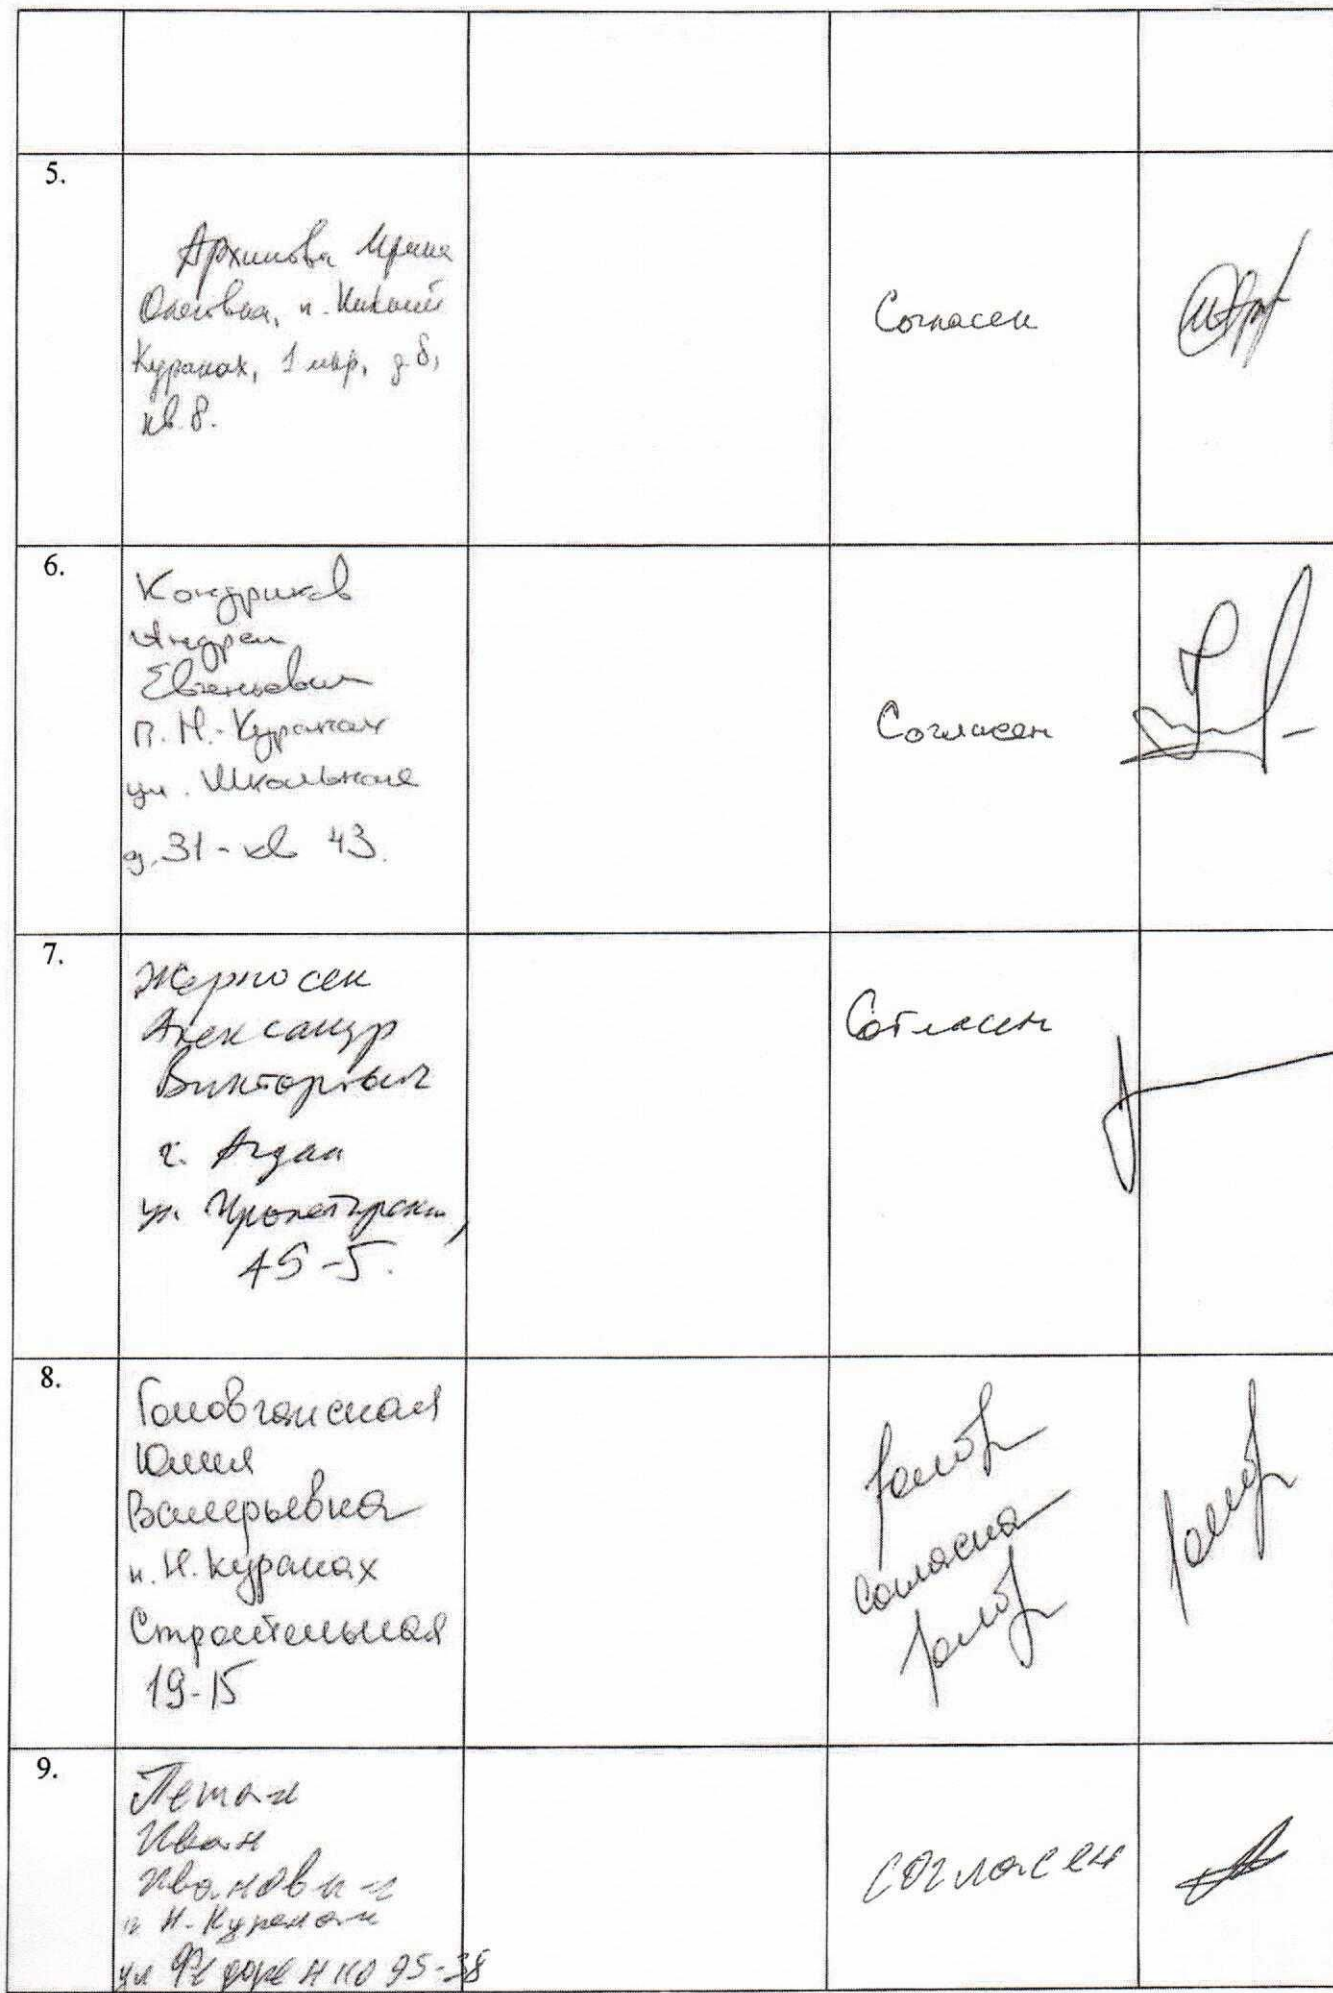 5.
Архипова Ирина
Олеговна, п. Нижний
Куранах, 1 мкр, д 8,
кв. 8.
Согласен
6.
Кондриков
Андрей
Евгеньевич
п. Н.-Куранах
ул. Школьная
д. 31 - кв 43.
Согласен
7.
Жерносек
Александр
Викторович
г. Алдан
ул. Пролетарская,
45-5.
Согласен
8.
Юлия
Валерьевна
п. Н. Куранах
Строительная
19-15
согласна
9.
Иван
Иванович
п Н-Куранах
ул Федоренко 95-38
согласен